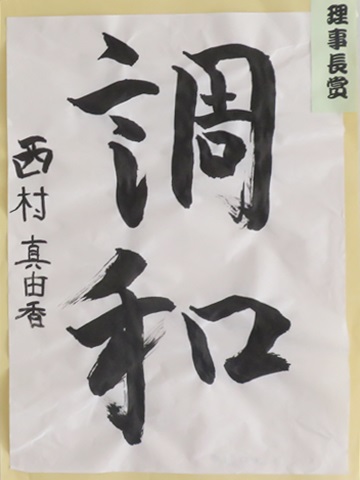 理事長賞
調和
西村真由香